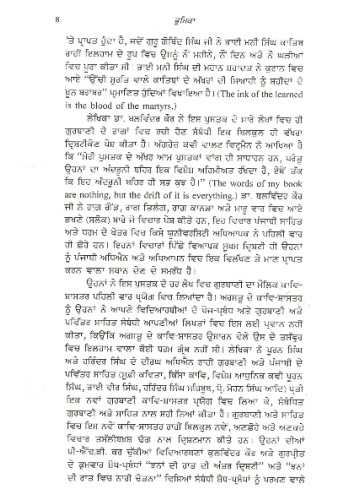 8 ਭੂਮਿਕਾ
'ਤੇ ਪ੍ਰਾਪਤ ਹੁੰਦਾ ਹੈ, ਜਦੋਂ ਗੁਰੂ ਗੋਬਿੰਦ ਸਿੰਘ ਜੀ ਨੇ ਭਾਈ ਮਨੀ ਸਿੰਘ ਕਾਤਿਬ
ਰਾਹੀਂ ਇਲਹਾਮ ਦੇ ਰੂਪ ਵਿਚ ਉਸਨੂੰ ਨੌਂ ਮਹੀਨੇ, ਨੌਂ ਦਿਨ ਅਤੇ ਨੌਂ ਘੜੀਆਂ
ਵਿਚ ਪੂਰਾ ਕੀਤਾ ਸੀ । ਭਾਈ ਮਨੀ ਸਿੰਘ ਦੀ ਮਹਾਨ ਸ਼ਹਾਦਤ ਨੇ ਕੁਰਾਨ ਵਿਚ
ਆਏ "ਉੱਚੀ ਸੁਰਤਿ ਵਾਲੇ ਕਾਤਿਬਾਂ ਦੇ ਅੱਖਰਾਂ ਦੀ ਸਿਆਹੀ ਨੂੰ ਸ਼ਹੀਦਾਂ ਦੇ
ਖ਼ੂਨ ਬਰਾਬਰ" ਪ੍ਰਮਾਣਿਤ ਹੁੰਦਿਆਂ ਵਿਖਾਇਆ ਹੈ। (The ink of the learned
is the blood of the martyrs.)
ਲੇਖਿਕਾ ਡਾ. ਬਲਵਿੰਦਰ ਕੌਰ ਨੇ ਇਸ ਪੁਸਤਕ ਦੇ ਸਾਰੇ ਲੇਖਾਂ ਵਿਚ ਹੀ
ਗੁਰਬਾਣੀ ਦੇ ਰਾਗਾਂ ਵਿਚ ਰਚੀ ਹੋਣ ਸੰਬੰਧੀ ਇਕ ਬਿਲਕੁਲ ਹੀ ਵੱਖਰਾ
ਦ੍ਰਿਸ਼ਟੀਕੋਣ ਪੇਸ਼ ਕੀਤਾ ਹੈ। ਅੰਗਰੇਜ਼ ਕਵੀ ਵਾਲਟ ਵਿਟ੍ਹਮੈਨ ਨੇ ਆਖਿਆ ਹੈ
ਕਿ "ਮੇਰੀ ਪੁਸਤਕ ਦੇ ਅੱਖਰ ਆਮ ਪੁਸਤਕਾਂ ਵਾਂਗ ਹੀ ਸਾਧਾਰਨ ਹਨ, ਪਰੰਤੂ
ਉਹਨਾਂ ਦਾ ਅੰਦਰੂਨੀ ਬਹਿਰ ਇਕ ਵਿਸ਼ੇਸ਼ ਅਹਿਮੀਅਤ ਰੱਖਦਾ ਹੈ, ਏਥੋਂ ਤੱਕ
ਕਿ ਇਹ ਅੰਦਰੂਨੀ ਬਹਿਰ ਹੀ ਸਭ ਕੁਝ ਹੈ।" (The words of my book
are nothing, but the drift of it is everything.) ਡਾ. ਬਲਵਿੰਦਰ ਕੌਰ
ਜੀ ਨੇ ਰਾਗ ਗੌਂਡ, ਰਾਗ ਤਿਲੰਗ, ਰਾਗ ਕਾਨੜਾ ਅਤੇ ਮਾਰੂ ਵਾਰ ਵਿਚ ਆਏ
ਡਖਣੇ (ਸਲੋਕ) ਬਾਰੇ ਜੋ ਵਿਚਾਰ ਪੇਸ਼ ਕੀਤੇ ਹਨ, ਇਹ ਵਿਚਾਰ ਪੰਜਾਬੀ ਸਾਹਿਤ
ਅਤੇ ਧਰਮ ਦੇ ਖੇਤਰ ਵਿਚ ਕਿਸੇ ਯੂਨੀਵਰਸਿਟੀ ਅਧਿਆਪਕ ਨੇ ਪਹਿਲੀ ਵਾਰ
ਹੀ ਛੋਹੇ ਹਨ। ਇਹਨਾਂ ਵਿਚਾਰਾਂ ਪਿੱਛੇ ਵਿਆਪਕ ਸੂਖਮ ਦ੍ਰਿਸ਼ਟੀ ਹੀ ਉਹਨਾਂ
ਨੂੰ ਪੰਜਾਬੀ ਅਧਿਐਨ ਅਤੇ ਅਧਿਆਪਨ ਵਿਚ ਇਕ ਵਿਲੱਖਣ ਤੇ ਮਾਣ ਪ੍ਰਾਪਤ
ਕਰਨ ਵਾਲਾ ਸਥਾਨ ਦੇਣ ਦੇ ਸਮਰੱਥ ਹੈ।
ਉਹਨਾਂ ਨੇ ਇਸ ਪੁਸਤਕ ਦੇ ਹਰ ਲੇਖ ਵਿਚ ਗੁਰਬਾਣੀ ਦਾ ਮੌਲਿਕ ਕਾਵਿ-
ਸ਼ਾਸਤਰ ਪਹਿਲੀ ਵਾਰ ਪ੍ਰਯੋਗ ਵਿਚ ਲਿਆਂਦਾ ਹੈ। ਅਰਸਤੂ ਦੇ ਕਾਵਿ-ਸ਼ਾਸਤਰ
ਨੂੰ ਉਹਨਾਂ ਨੇ ਆਪਣੇ ਵਿਦਿਆਰਥੀਆਂ ਦੇ ਖੋਜ-ਪ੍ਰਬੰਧ ਅਤੇ ਗੁਰਬਾਣੀ ਅਤੇ
ਪਵਿੱਤਰ ਸਾਹਿਤ ਸੰਬੰਧੀ ਆਪਣੀਆਂ ਲਿਖਤਾਂ ਵਿਚ ਇਸ ਲਈ ਪ੍ਰਵਾਨ ਨਹੀਂ
ਕੀਤਾ, ਕਿਉਂਕਿ ਅਰਸਤੂ ਦੇ ਕਾਵਿ-ਸ਼ਾਸਤਰ ਉਸਾਰਨ ਵੇਲੇ ਉਸ ਦੇ ਤਸੱਵੁਰ
ਵਿਚ ਇਲਹਾਮ ਵਾਲਾ ਕੋਈ ਧਰਮ ਗ੍ਰੰਥ ਨਹੀਂ ਸੀ। ਲੇਖਿਕਾ ਨੇ ਪੂਰਨ ਸਿੰਘ
ਅਤੇ ਹਰਿੰਦਰ ਸਿੰਘ ਦੇ ਦੀਰਘ ਅਧਿਐਨ ਰਾਹੀਂ ਗੁਰਬਾਣੀ ਅਤੇ ਪੰਜਾਬੀ ਦੇ
ਪਵਿੱਤਰ ਸਾਹਿਤ (ਸੂਫ਼ੀ ਕਵਿਤਾ, ਕਿੱਸਾ ਕਾਵਿ, ਵਿਸ਼ੇਸ਼ ਆਧੁਨਿਕ ਕਵੀ ਪੂਰਨ
ਸਿੰਘ, ਭਾਈ ਵੀਰ ਸਿੰਘ, ਹਰਿੰਦਰ ਸਿੰਘ ਮਹਿਬੂਬ, ਪ੍ਰੋ. ਮੋਹਨ ਸਿੰਘ ਆਦਿ) ਪ੍ਰਤੀ
ਇਕ ਨਵਾਂ ਗੁਰਬਾਣੀ ਕਾਵਿ-ਸ਼ਾਸਤਰ ਪ੍ਰਯੋਗ ਵਿਚ ਲਿਆ ਕੇ, ਸੰਬੰਧਿਤ
ਗੁਰਬਾਣੀ ਅਤੇ ਸਾਹਿਤ ਨਾਲ ਸਹੀ ਨਿਆਂ ਕੀਤਾ ਹੈ। ਗੁਰਬਾਣੀ ਅਤੇ ਸਾਹਿਤ
ਵਿਚ ਇਸ ਨਵੇਂ ਕਾਵਿ-ਸ਼ਾਸਤਰ ਰਾਹੀਂ ਬਿਲਕੁਲ ਨਵੇਂ, ਅਣਛੋਹੇ ਅਤੇ ਅਣਕਹੇ
ਵਿਚਾਰ ਤਸੱਲੀਬਖ਼ਸ਼ ਢੰਗ ਨਾਲ ਦ੍ਰਿਸ਼ਟਮਾਨ ਕੀਤੇ ਹਨ। ਉਹਨਾਂ ਦੀਆਂ
ਪੀ-ਐੱਚ.ਡੀ. ਕਰ ਚੁੱਕੀਆਂ ਵਿਦਿਆਰਥਣਾਂ ਕੁਲਵਿੰਦਰ ਕੌਰ ਅਤੇ ਗੁਰਪ੍ਰੀਤ
ਦੇ ਕ੍ਰਮਵਾਰ ਸ਼ੋਧ-ਪ੍ਰਬੰਧਾਂ "ਝਨਾਂ ਦੀ ਰਾਤ ਦੀ ਅੰਤਰ ਦ੍ਰਿਸ਼ਟੀ" ਅਤੇ "ਝਨਾਂ
ਦੀ ਰਾਤ ਵਿਚ ਨਾਰੀ ਚੇਤਨਾ" ਵਿਸ਼ਿਆਂ ਸੰਬੰਧੀ ਸ਼ੋਧ-ਪ੍ਰਬੰਧਾਂ ਨੂੰ ਪਰਖਣ ਵਾਲੇ